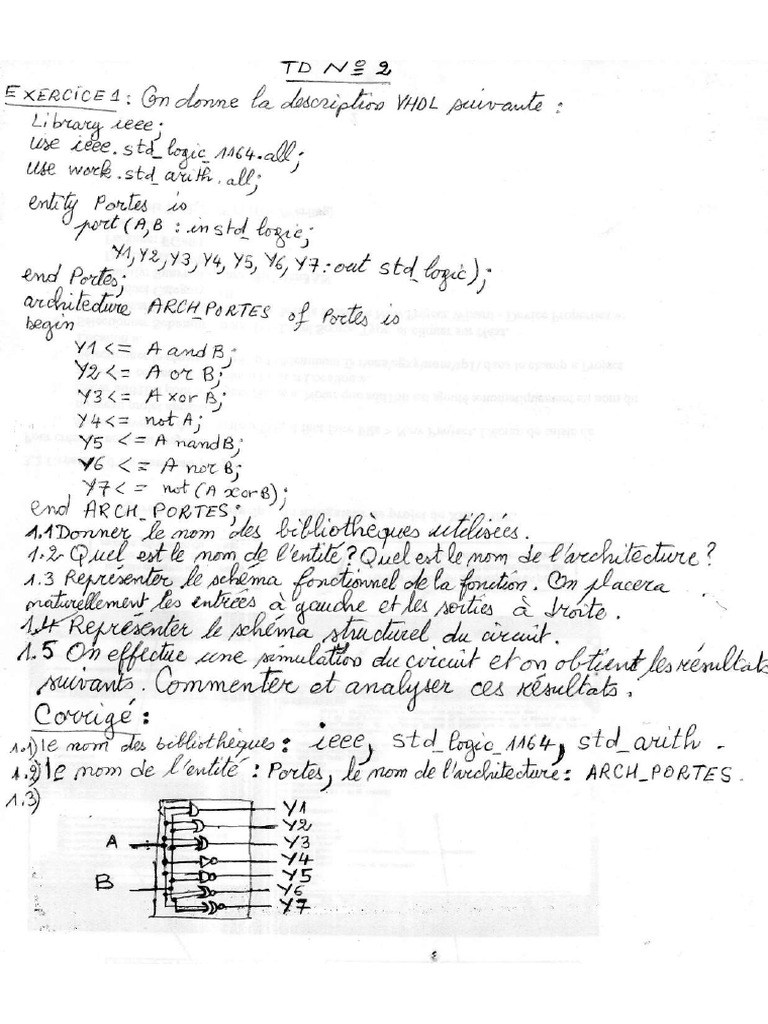 TD Nº 2
EXERCICE 1: On donne la description VHDL suivante :
Library ieee;
use ieee.std_logic_1164.all;
use work.std_arith.all;
entity Portes is
port(A,B : in std_logic;
Y1,Y2,Y3,Y4,Y5,Y6,Y7:out std_logic);
end Portes;
architecture ARCHPORTES of Portes is
begin
Y1 <= A and B;
Y2 <= A or B;
Y3 <= A xor B;
Y4 <= not A;
Y5 <= A nand B;
Y6 <= A nor B;
Y7 <= not (A xor B);
end ARCH_PORTES;
1.1 Donner le nom des bibliothèques utilisées.
1.2 Quel est le nom de l'entité? Quel est le nom de l'architecture?
1.3 Représenter le schéma fonctionnel de la fonction. On placera
naturellement les entrées à gauche et les sorties à droite.
1.4 Représenter le schéma structurel du circuit.
1.5 On effectue une simulation du circuit et on obtient les résultats
suivants. Commenter et analyser ces résultats.
Corrigé :
1.1) le nom des bibliothèques : ieee, std_logic_1164, std_arith.
1.2) le nom de l'entité : Portes, le nom de l'architecture : ARCH_PORTES.
1.3)
Y1
Y2
A Y3
Y4
B Y5
Y6
Y7